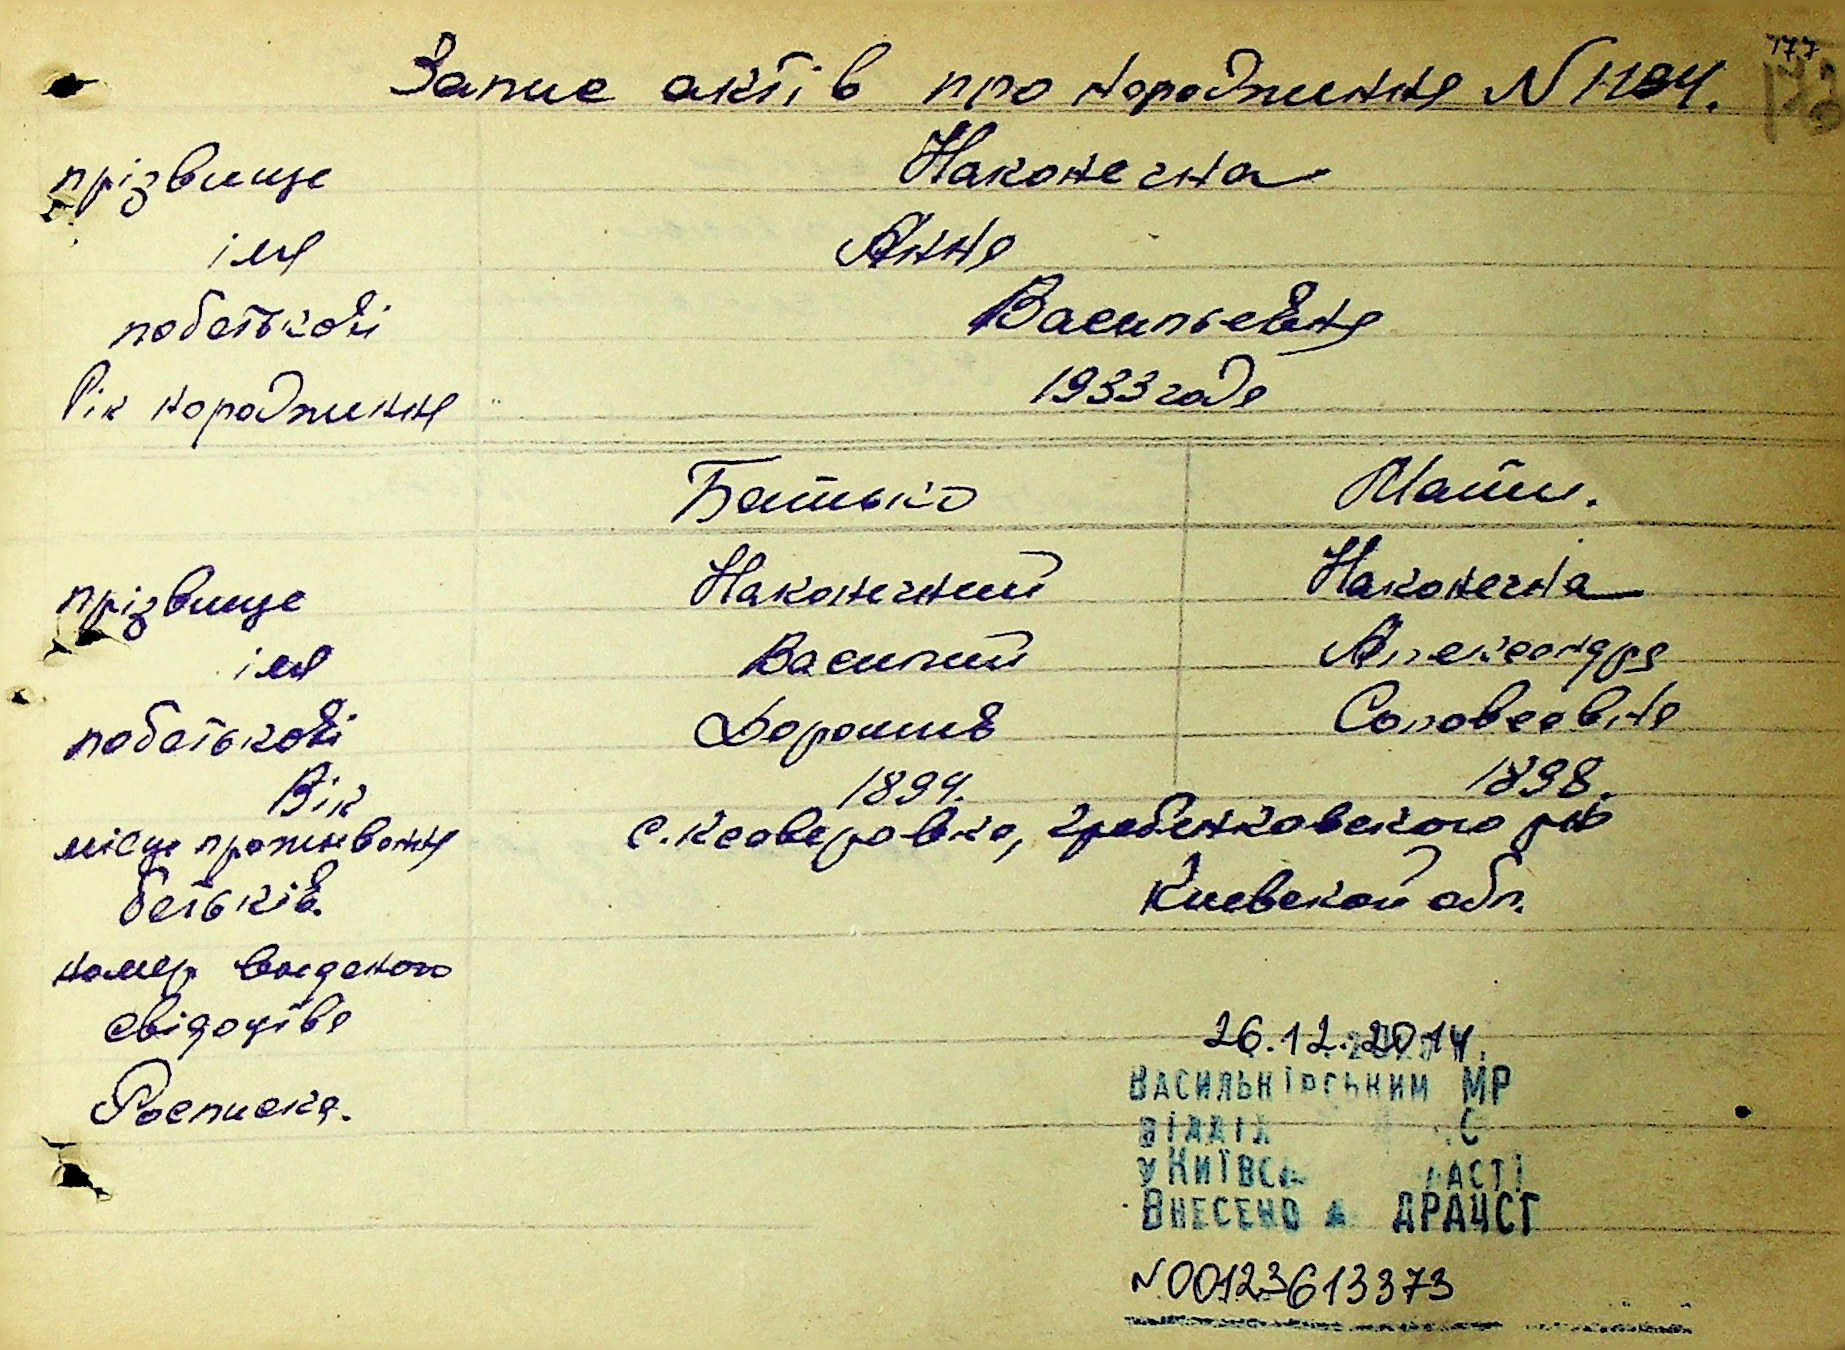 177
Запис актів про нараджиння N 1194.
прізвище Наконечна
імя Анна
побатькові Васильевна
Рік нараджиння 1933 года
Батько Мати.
прізвище Наконечний Наконечна
імя Василий Александра
побатькові Дорошив Соловеевна
Вік 1894. 1898.
місце проживання с. Ксаверовка, Гребенковского р-на
батьків. Киевской обл.
номер виданого
свідоцтва
Росписка.
26.12.2014.
ВАСИЛЬКІВСЬКИМ МР
ВІДДІЛ С
У КИЇВСЬ ЛАСТІ
ВНЕСЕНО ДРАЦСГ
N 00123613373